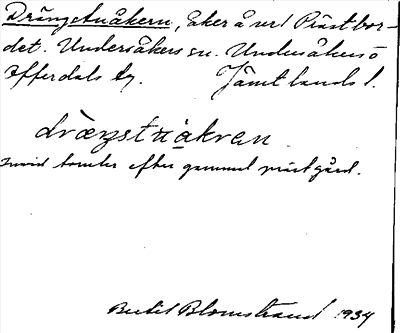 Drängstuåkern, åker å nr 1 Prästbor-
det. Undersåkers sn. Undersåkers o
Offerdals tg. Jämtlands l.
dräŋstuåkræn
invid tomten efter gammal prästgård.
Bertil Blomstrand 1934